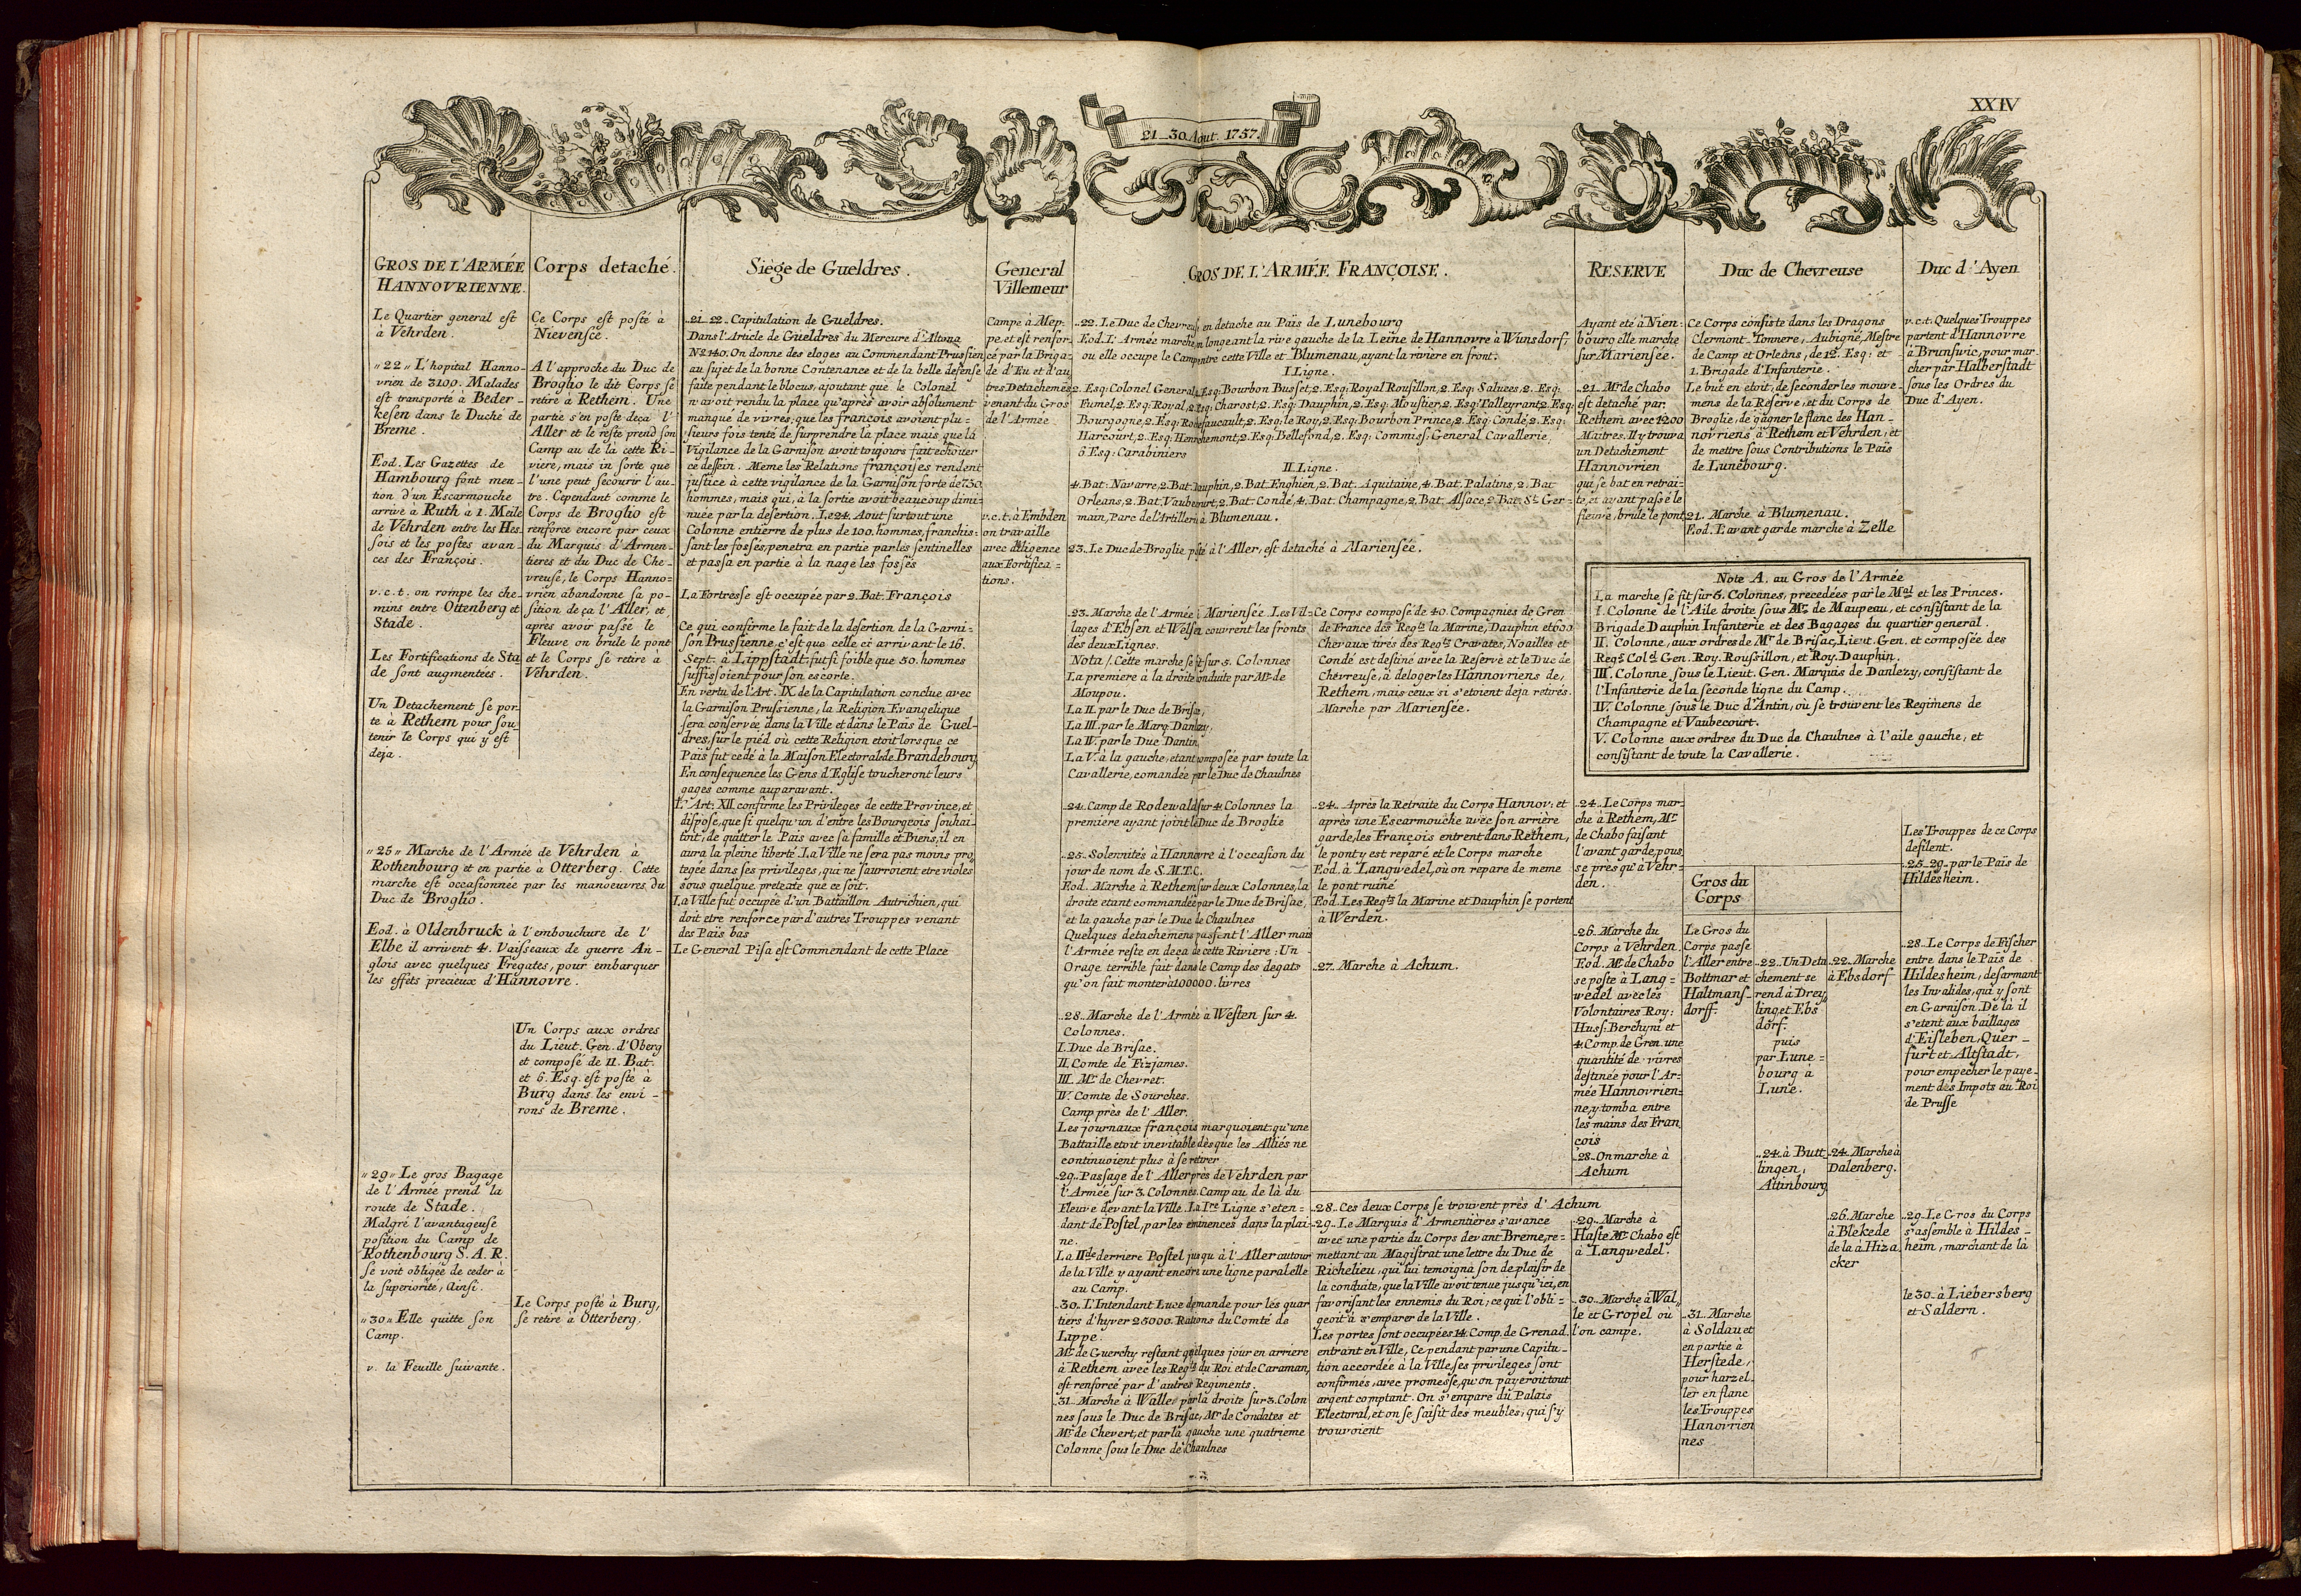 XXIV
21_30 Aout. 1757.
GROS DE L'ARMÉE
HANNOVRIENNE.
Le Quartier general est
à Vehrden.
"22" L'hopital Hanno-
vrien de 3100. Malades
est transporté à Beder-
kesen dans le Duché de
Breme.
Eod. Les Gazettes de
Hambourg font men-
tion d'un Escarmouche
arrivé à Ruth à 1. Meile
de Vehrden entre les Hes
sois et les postes avan-
ces des François.
v.c.t. on rompe les che-
mins entre Ottenberg et
Stade.
Les Fortifications de Sta
de sont augmentées.
Un Detachement se por-
te à Rethem pour sou-
tenir le Corps qui y est
deja.
"25" Marche de l'Armée de Vehrden à
Rothenbourg et en partie à Otterberg. Cette
marche est occasionnée par les manoeuvres du
Duc de Broglio.
Eod. à Oldenbruck à l'embouchure de l'
Elbe il arrivent 4. Vaisseaux de guerre An-
glois avec quelques Fregates, pour embarquer
les effets precieux d'Hannovre.
"29" Le gros Bagage
de l'Armée prend la
route de Stade.
Malgré l'avantageuse
position du Camp de
Rothenbourg S.A.R.
se voit obligée de ceder à
la superiorité, Ainsi.
"30" Elle quitte son
Camp.
v. la Feuille suivante.
Corps detaché.
Ce Corps est posté à
Nievensée.
A l'approche du Duc de
Broglio le dit Corps se
retire à Rethem. Une
partie s'en poste deça l'
Aller et le reste prend son
Camp au de là cette Ri-
viere, mais in sorte que
l'une peut secourir l'au-
tre. Cependant comme le
Corps de Broglio est
renforcé encore par ceux
du Marquis d'Armen-
tieres et du Duc de Che-
vreuse, le Corps Hanno=
vrien abandonne sa po-
sition deça l'Aller, et
après avoir passé le
Fleuve on brule le pont
et le Corps se retire à
Vehrden.
Un Corps aux ordres
du Lieut. Gen. d'Oberg
et composé de 11. Bat.
et 6. Esq. est posté à
Burg dans les envi-
rons de Breme.
Le Corps posté à Burg,
se retire à Otterberg.
Siège de Gueldres.
21_22_ Capitulation de Gueldres.
Dans l'Article de Gueldres du Mercure d'Altona
No. 140. On donne des eloges au Commendant Prussien
au sujet de la bonne Contenance et de la belle defense
faite pendant le blocus, ajoutant que le Colonel
n'avoit rendu la place qu'après avoir absolument
manqué de vivres; que les françois avoient plu=
sieurs fois tenté de surprendre la place mais que la
Vigilance de la Garnison avoit toujours fait echouer
ce dessein. Meme les Relations françoises rendent
justice à cette vigilance de la Garnison forte de 730
hommes, mais qui, à la sortie avoit beaucoup dimi=
nuée par la desertion. Le 24. Aout surtout une
Colonne entierre de plus de 100. hommes, franchis=
sant les fossés, penetra en partie par les sentinelles
et passa en partie à la nage les fossés
La Fortresse est occupée par 2. Bat. François
Ce qui confirme le fait de la desertion de la Garni=
son Prussienne c'est que celle ci arrivant le 16.
Sept. à Lippstadt, fut si foible que 50. hommes
suffissoient pour son escorte.
En vertu de l'Art. IX de la Capitulation conclue avec
la Garnison Prussienne, la Religion Evangelique
sera conservée dans la Ville et dans le Païs de Guel-
dres, sur le piéd où cette Religion etoit lors que ce
Païs fut cedé à la Maison Electorale de Brandebourg
En consequence les Gens d'Eglise toucheront leurs
gages comme auparavant.
L'Art. XII confirme les Privileges de cette Province, et
dispose, que si quelqu'un d'entre les Bourgeois souhai-
toit de quitter le Pais avec sa famille et Biens, il en
aura la pleine liberté. La Ville ne sera pas moins pro
tegée dans ses privileges, qui ne sauroient etre violés
sous quelque pretexte que ce soit.
La Ville fut occupée d'un Battaillon Autrichien, qui
doit etre renforcé par d'autres Trouppes venant
des Païs bas
Le General Pisa est Commendant de cette Place
General
Villemeur
Campe à Mep-
pe, et est renfor-
cé par la Briga-
de d'Eu et d'au
tres Detachemens
venant du Gros
de l'Armée.
v.c.t. à Embden
on travaille
avec diligence
aux Fortifica=
tions.
GROS DE L'ARMÉE FRANÇOISE.
22. Le Duc de Chevreuse, en detache au Païs de Lunebourg
Eod. L'Armée marche en longeant la rive gauche de la Leine de Hannovre à Wunsdorf,
ou elle occupe le Camp entre cette Ville et Blumenau, ayant la rivière en front.
I Ligne.
2. Esq: Colonel General, 2. Esq: Bourbon Busset, 2. Esq: Royal Rousillon, 2. Esq. Saluces, 2. Esq.
Fumel, 2. Esq: Royal, 2. Esq: Charost, 2. Esq: Dauphin, 2. Esq: Moustier, 2. Esq: Talleyrant, 2. Esq:
Bourgogne, 2. Esq: Rochefaucault, 2. Esq: le Roy, 2. Esq: Bourbon Prince, 2. Esq: Condé, 2. Esq:
Harcourt, 2. Esq: Henrichemont, 2. Esq: Bellefond, 2. Esq: Commiss: General Cavallerie,
6 Esq: Carabiniers
II Ligne.
4. Bat: Navarre, 2. Bat. Dauphin, 2. Bat. Enghien, 2. Bat. Aquitaine, 4. Bat. Palatins, 2. Bat
Orleans, 2. Bat. Vaubecourt, 2. Bat. Condé, 4. Bat. Champagne, 2. Bat. Alsace, 2. Bat. St. Ger=
main, Parc de l'Artillerie à Blumenau.
23. Le Duc de Broglie posté à l'Aller, est detaché à Mariensée.
23. Marche de l'Armée à Mariensée. Les Vil=
lages d'Ebsen et Welsen couvrent les fronts
des deux Lignes.
Nota /. Cette marche se fit sur 5. Colonnes
La premiere à la droite conduite par Mr. de
Moupou.
La II. par le Duc de Brisac,
La III. par le Marq. Danlezy,
La IV. par le Duc Dantin,
La V. à la gauche, etant composée par toute la
Cavallerie, comandée par le Duc de Chaulnes
24. Camp de Rodewald sur 4. Colonnes la
premiere ayant joint le Duc de Broglie
25. Solemnités à Hannovre à l'occasion du
jour de nom de S.M.T.C.
Eod. Marche à Rethem sur deux Colonnes, la
droite etant commandée par le Duc de Brisac,
et la gauche par le Duc de Chaulnes
Quelques detachemens passent l'Aller mais
l'Armée reste en deça de cette Riviere: Un
Orage terrible fait dans le Camp des degats
qu'on fait monter à 100000. livres
28. Marche de l'Armée à Westen sur 4.
Colonnes.
I. Duc de Brisac.
II. Comte de Fizjames.
III. Mr. de Chevret.
IV. Comte de Sourches.
Camp près de l'Aller.
Les journaux françois marquoient qu'une
Battaille etoit inevitable dès que les Alliés ne
continuoient plus à se retirer
29. Passage de l'Aller près de Vehrden par
l'Armée sur 3. Colonnes. Camp au de là du
Fleuve devant la Ville. La Ire Ligne s'eten=
dant de Postel, par les eminences dans la plai-
ne.
La IIde derriere Postel jusqu à l'Aller autour
de la Ville y ayant encore une ligne paralelle
au Camp.
30. L'Intendant Luce demande pour les quar
tiers d'hyver 25000. Rations du Comté de
Lippe.
Mr. de Guerchy restant quelques jour en arriere
à Rethem avec les Regts du Roi et de Caraman,
est renforcé par d'autres Regiments.
31. Marche à Walle, par la droite sur 3. Colon
nes sous le Duc de Brisac, Mr. de Condates et
Mr. de Chevert, et par la gauche une quatrieme
Colonne sous le Duc de Chaulnes
Ce Corps composé de 40. Compagnies de Gren
de France des Regts la Marine, Dauphin et 600
Chevaux tirés des Regts Cravates, Noailles et
Condé est destiné avec la Reserve et le Duc de
Chevreuse, à deloger les Hannovriens de
Rethem, mais ceux si s'etoient deja retirés.
Marche par Mariensée.
24. Après la Retraite du Corps Hannov: et
après une Escarmouche avec son arrière
garde, les François entrent dans Rethem,
le pont y est reparé et le Corps marche
Eod. à Langwedel, où on repare de meme
le pont ruiné
Eod. Les Regts la Marine et Dauphin se portent
à Werden.
27. Marche à Achum.
28. Ces deux Corps se trouvent près d'Achum
29. Le Marquis d'Armentières s'avance
avec une partie du Corps devant Breme, re=
mettant au Magistrat une lettre du Duc de
Richelieu, qui lui temoigna son deplaisir de
la conduite, que la Ville avoit tenue jusqu'ici, en
favorisant les ennemis du Roi; ce qui l'obli=
geoit à s'emparer de la Ville.
Les portes sont occupées 14. Comp. de Grenad.
entrant en Ville, Ce pendant par une Capitu-
tion accordée à la Ville, ses privileges sont
confirmés, avec promesse, qu'on payeroit tout
argent comptant. On s'empare du Palais
Electoral, et on se saisit des meubles, qui s'y
trouvoient
RESERVE
Ayant eté à Nien-
bourg elle marche
sur Mariensée.
21. Mr. de Chabo
est detaché par
Rethem avec 1200
Maitres. Il y trouva
un Detachement
Hannovrien
qui se bat en retrai-
te, et ayant passé le
fleuve, brule le pont
24. Le Corps mar-
che à Rethem, Mr.
de Chabo faisant
l'avant garde, pous
se près qu'à Vehr-
den.
26. Marche du
Corps à Vehrden.
Eod. Mr. de Chabo
se poste à Lang=
wedel avec les
Volontaires Roy:
Huss: Berchyni et
4. Comp. de Gren. une
quantité de vivres
destinée pour l'Ar-
mée Hannovrien-
ne, y tomba entre
les mains des Fran
çois
28. On marche à
Achum
29. Marche à
Haste Mr. Chabo est
à Langwedel.
30. Marche à Wal
le et Gropel où
l'on campe.
Duc de Chevreuse
Ce Corps consiste dans les Dragons
Clermont. Tonnere, Aubigné, Mestre
de Camp et Orleans, de 12. Esq: et
1. Brigade d'Infanterie.
Le but en etoit, de seconder les mouve-
mens de la Reserve, et du Corps de
Broglie, de gagner le flanc des Han-
novriens à Rethem et Vehrden, et
de mettre sous Contributions le Païs
de Lunebourg.
21. Marche à Blumenau.
Eod. L'avant garde marche à Zelle
Duc d'Ayen
v.c.t. Quelques Trouppes
partent d'Hannovre
à Brunsvic, pour mar
cher par Halberstadt
sous les Ordres du
Duc d'Ayen.
Note A. au Gros de l'Armée
La marche se fit sur 6. Colonnes, precedées par le Mal et les Princes.
I. Colonne de l'Aile droite sous Mr. de Maupeau, et consistant de la
Brigade Dauphin Infanterie et des Bagages du quartier general.
II. Colonne, aux ordres de Mr de Brisac, Lieut. Gen. et composée des
Regts Coll. Gen. Roy. Roussillon, et Roy. Dauphin.
III. Colonne sous le Lieut. Gen. Marquis de Danlezy, consistant de
l'Infanterie de la seconde ligne du Camp.
IV. Colonne sous le Duc d'Antin, ou se trouvent les Regimens de
Champagne et Vaubecourt.
V. Colonne aux ordres du Duc de Chaulnes à l'aile gauche, et
consistant de toute la Cavallerie.
Gros du
Corps
Le Gros du
Corps passe
l'Aller entre
Bottmar et
Haltmans-
dorff.
31. Marche
à Soldau et
en partie à
Herstede,
pour harzel-
ler en flanc
les Trouppes
Hanovrien
nes
22. Un Deta
chement se
rend à Drey
ling, et Ebs
dorf.
puis
par Lune=
bourg à
Lune.
24. à Butt
lingen,
Altinbourg
22. Marche
à Ebsdorf
24. Marche à
Dalenberg.
26. Marche
à Blekede
de la à Hiza
cker
Les Trouppes de ce Corps
defilent.
25_29. par le Païs de
Hildesheim.
28. Le Corps de Fischer
entre dans le Païs de
Hildesheim, desarmant
les Invalides, qui y sont
en Garnison. De là il
s'etent aux baillages
d'Eisleben, Quer-
furt et Altstadt,
pour empecher le paye-
ment des Impots au Roi
de Prusse
29. Le Gros du Corps
s'assemble à Hildes-
heim, marchant de là
le 30. à Liebersberg
et Saldern.